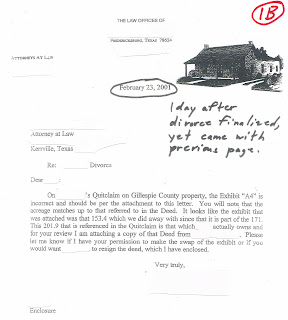 1B
THE LAW OFFICES OF
FREDERICKSBURG, TEXAS 78624
ATTORNEYS AT LAW
February 23, 2001
1 day after
divorce finalized,
yet came with
previous page.
Attorney at Law
Kerrville, Texas
Re: Divorce
Dear :
On 's Quitclaim on Gillespie County property, the Exhibit "A4" is
incorrect and should be per the attachment to this letter. You will note that the
acreage matches up to that referred to in the Deed. It looks like the exhibit that
was attached was that 153.4 which we did away with since that it is part of the 171.
This 201.9 that is referenced in the Quitclaim is that which actually owns and
for your review I am attaching a copy of that Deed from . Please
let me know if I have your permission to make the swap of the exhibit or if you
would want to resign the deed, which I have enclosed.
Very truly,
Enclosure